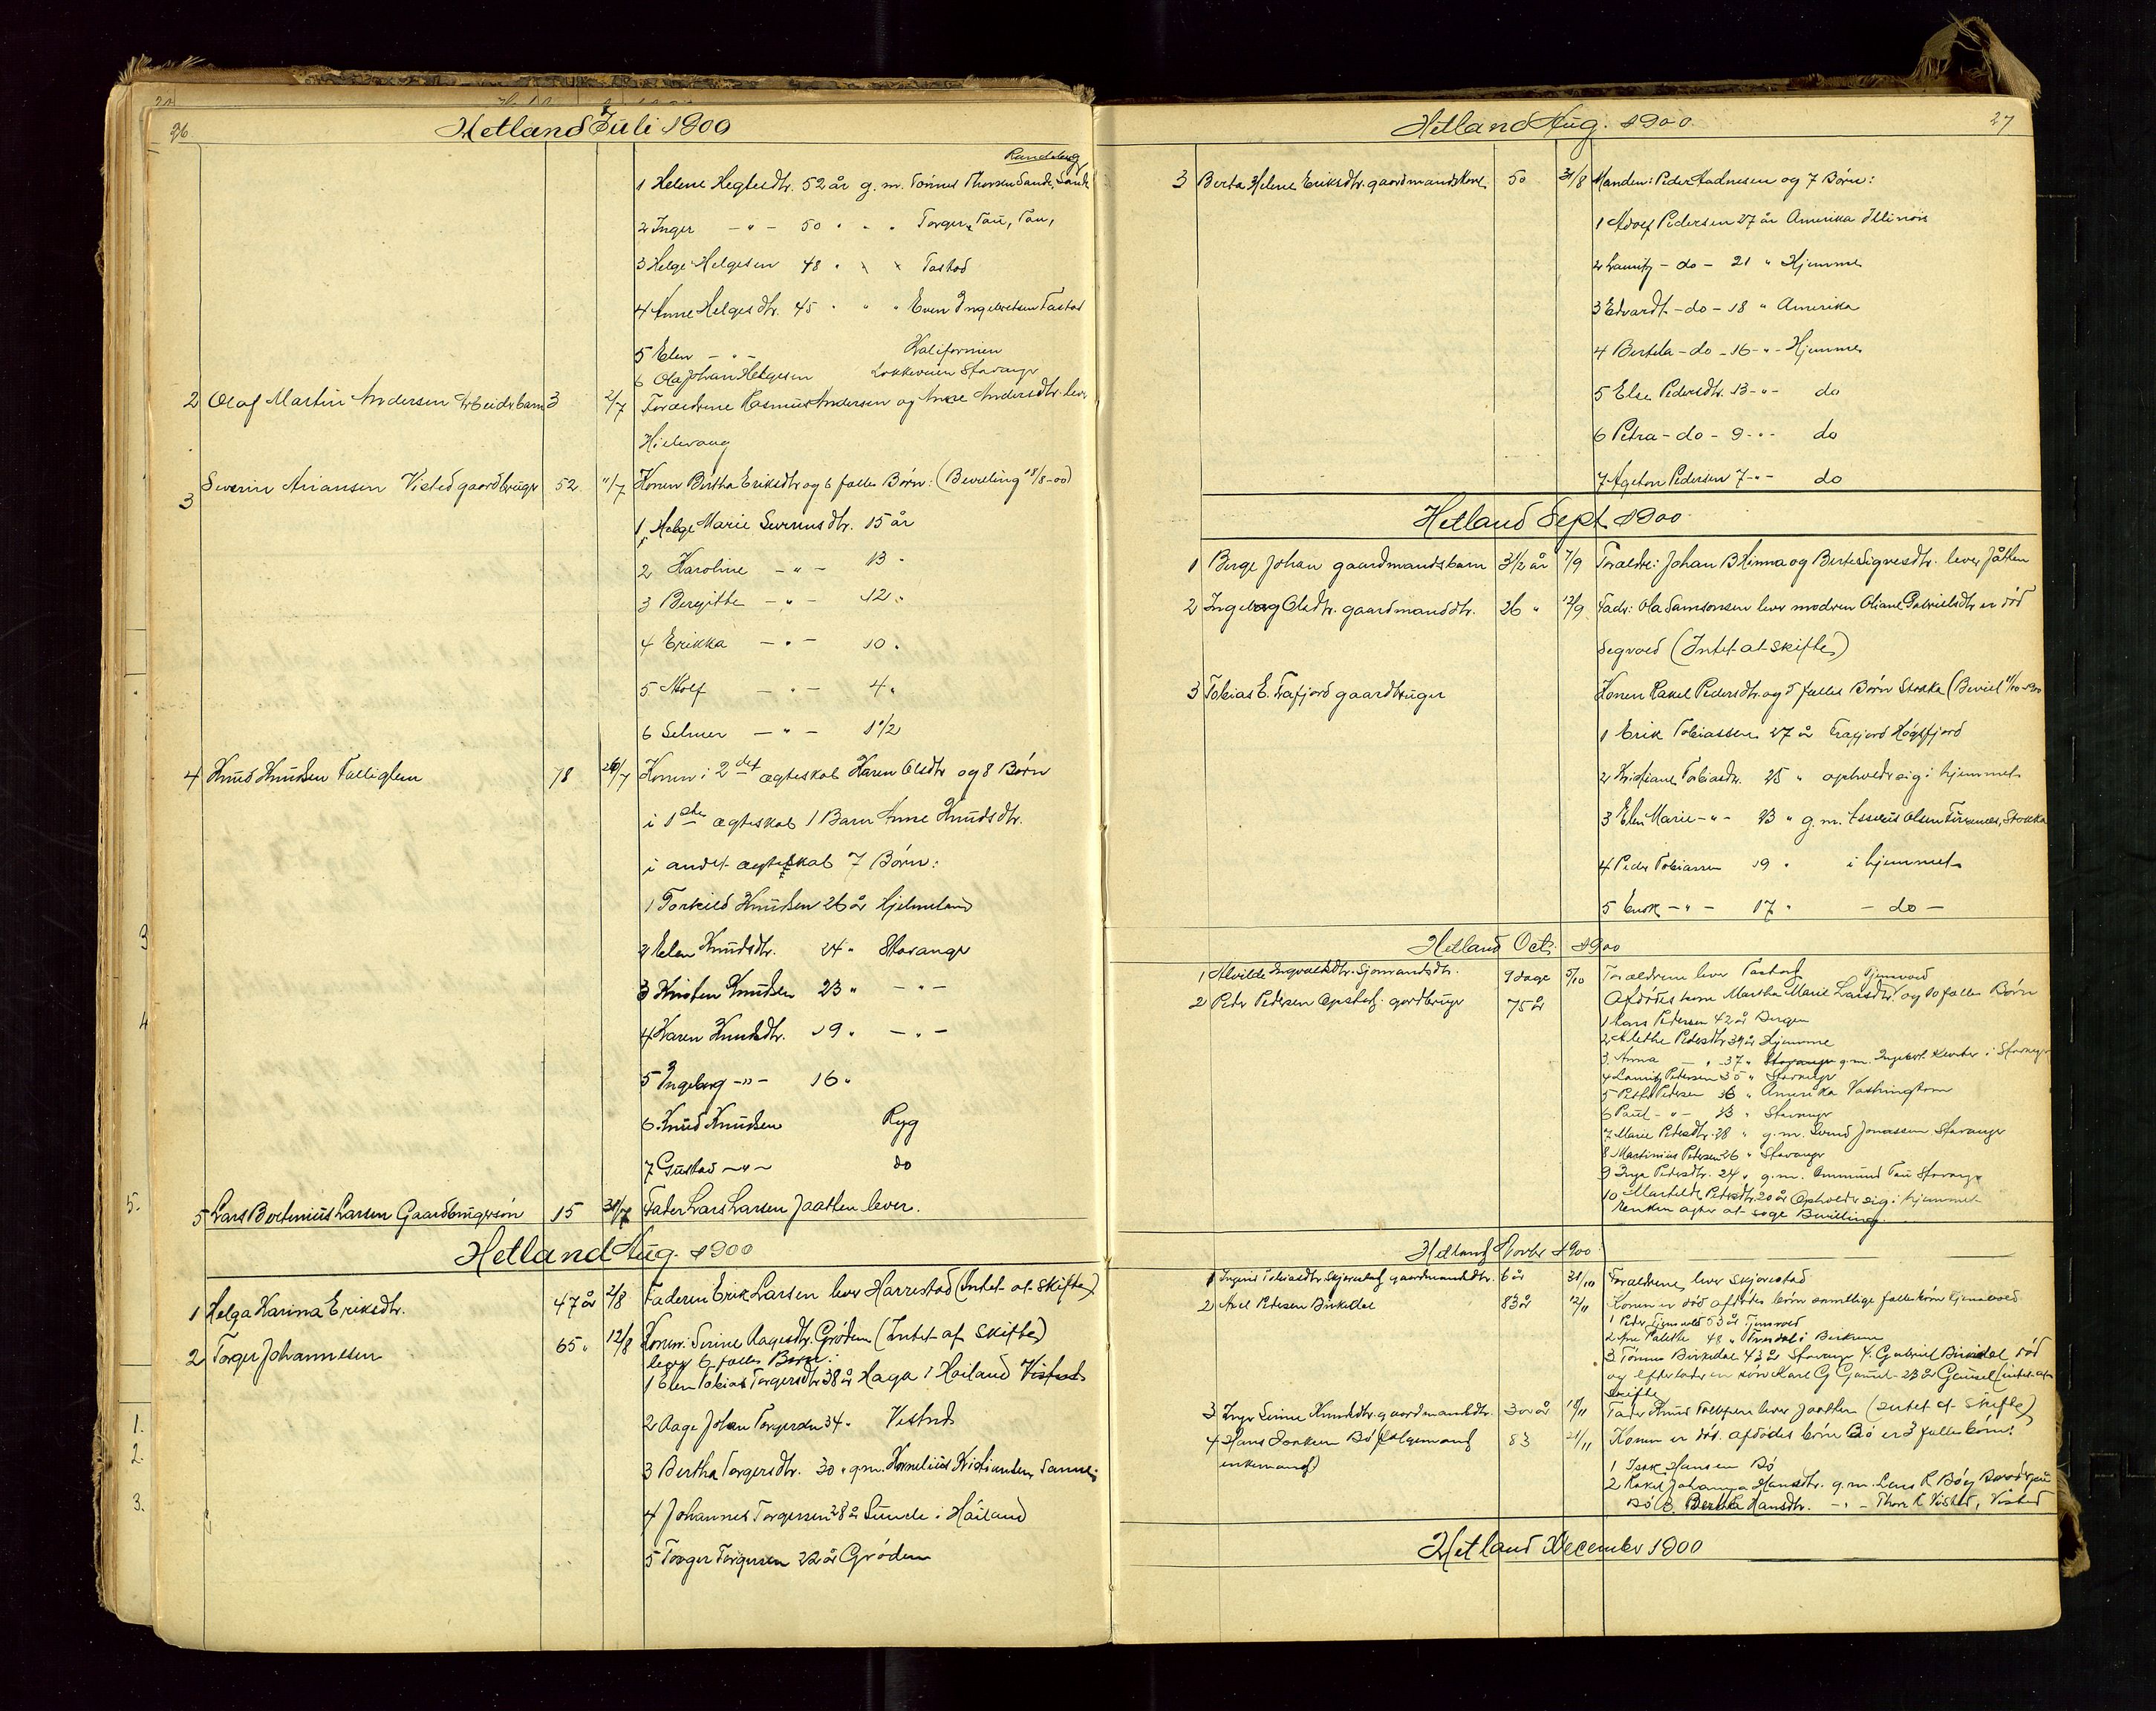 26
Hetland Juli 1900
Randaberg
1 Helene Helgesdtr. 52 år g. m. Tønnes Thorsen Sande, Sande
2 Inger - " - 50 " " " Torger Tau, Tau,
3 Helge Helgesen 48 " Tastad
4 Anne Helgesdtr. 45 " " " Even Ingebretsen Tastad
5 Elen - " - Kalifornien
6 Ola Johan Helgesen Løkkeveien Stavanger
2 Olaf Martin Andersen Arbeidsbarn 3 2/7 Forældrene Rasmus Andersen og Anne Andersdtr. lever
Hillevaag
3 Severin Ariansen Visted gaardbruger 52 11/7 Konen Bertha Eriksdtr og 6 fælles Børn: (Bevilling 18/8-00)
1 Helge Marie Severinsdtr. 15 år
2 Karoline - " - 13 "
3 Bergitte - " - 12 "
4 Erikka - " - 10 "
5 Adolf - " - 4 "
6 Selmer - " - 1 1/2
4 Knud Knudsen Tælliglen 78 26/7 Konen i 2det ægteskab Karen Olsdtr og 8 Børn
i 1ste ægteskab 1 Barn Anne Knudsdtr.
i andet ægteskab 7 Børn:
1 Torkild Knudsen 26 år Hjelmeland
2 Elen Knudsdtr. 24 " Stavanger
3 Kristen Knudsen 23 " - " -
4 Karen Knudsdtr. 19 " - " -
5 Ingeborg - " - 16 "
6 Knud Knudsen Ryg
7 Gustav - " - do
5 Lars Bertinius Larsen Gaardbrugersøn 15 31/7 Fader Lars Larsen Jaatten lever.
Hetland Aug. 1900
1 Helga Karina Eriksdtr. 47 år 2/8 Faderen Erik Larsen lever Harrestad (Intet at skifte)
2 Torger Johannesen 65 " 12/8 Konen: Serine Aagesdtr. Grødem (Intet at skifte)
lever 6 fælles Børn:
1 Elen Tobia Torgersdtr 38 år Haga i Håland
2 Aage Johan Torgersen 34 " Visted
3 Bertha Torgersdtr. 30 " g.m. Kornelius Kristiansen,
4 Johannes Torgersen 28 år Sunde i Håland
5 Torger Torgersen 22 år Grødem
27
Hetland Aug. 1900
3 Berta Helene Eriksdtr. gaardmandskone 50 31/8 Manden: Peder Aadnesen og 7 Børn:
1 Adolf Pedersen 27 år Amerika Illinois
2 Lauritz - do - 21 " Hjemme
3 Edvardt - do - 18 " Amerika
4 Bertela - do - 16 - " - Hjemme
5 Else Pedersdtr. 13 - " - do
6 Petra - do - 9 - " - do
7 Ageton Pedersen 7 - " - do
Hetland Sept 1900
1 Berge Johan gaardmandsbarn 3 1/2 år 7/9 Foraeldre: Johan B Hinna og Berte Sigvesdtr. lever Jåtten
2 Ingeborg Olsdtr. gaardmanddtr. 26 " 12/9 Fader: Ola Samsonsen lever modren Oliane Gabrielsdtr er død
(Intet at skifte)
3 Tobias E. Frafjord gaardbruger Konen Rakel Pedersdtr. og 5 fælles Børn Stokka (Bevil 11/10 1900
1 Erik Tobiassen 27 år Frafjord Høgsfjord
2 Kristiane Tobiasdtr. 25 " opholder sig i hjemmet
3 Elen Marie - " - 23 " g. m. Asserius Olsen Stokka
4 Peder Tobiassen 19 " i hjemmet
5 - " - 17 " - do -
Hetland Oct. 1900
1 Alvilde Ingvaldsdtr. Sjømandsdtr. 9 dage 5/10 Foraeldrene lever Tastad
Tjensvold
2 Peder Pedersen Opstad gardbruger 75 år Afdødes kone Martha Marie Larsdtr. og 10 fælles Børn
1 Lars Pedersen 42 år Bergen
2 Alethe Pedersdtr 39 år Hjemme
3 Anna - " - 37 " Stavanger g.m. Ingebert i Stavanger
4 Lauritz Petersen 35 " Stavanger
5 Peder Pedersen 36 " Amerika Vashington
6 Paul - " - 33 " Stavanger
7 Marie Pedersdtr. 28 " g. m. Svend Jonassen Stavanger
8 Martinius Petersen 26 " Stavanger
9 Inga Pedersdtr. 24 " g. m. Ommund Tau Stavanger
10 Mathilde Pedersdtr. 20 år Opholder sig i hjemmet
Enken agter at søge Bevilling
Hetland Novbr 1900
1 Ingeris Tobiasdtr. Skjørestad gaardmandsdtr. 6 år 31/10 Foraeldrene lever Skjørestad
2 Axel Petersen Birkedal 83 år 12/11 Konen er død afdødes børn samtlige fælles børn Tjensvold
1 Peder Tjensvold 53 år Tjensvold
2 Ane Malethe 48 " i Birkrem
3 Tønnes Birkedal 43 år Stavanger 4. Gabriel Birkedal død
og efterlader en søn Karl G Gausel 23 år Gausel (intet at
skifte
3 Inger Serine Knudsdtr. gaardmandsdtr. 30 år 18/11 Fader Knud lever Jaatten (Intet at skifte)
4 Hans Isaksen Bø Følgemand 83 21/11 Konen er død. afdødes børn Bø er 3 fælles børn:
enkemand)
1 Isak Hansen Bø
2 Rakel Johanna Hansdtr. g. m. Lars R Bø
Bø 3. Bertha Hansdtr. - " - Thore R Visted, Visted
Hetland December 1900
3
4
5.
1.
2.
3.